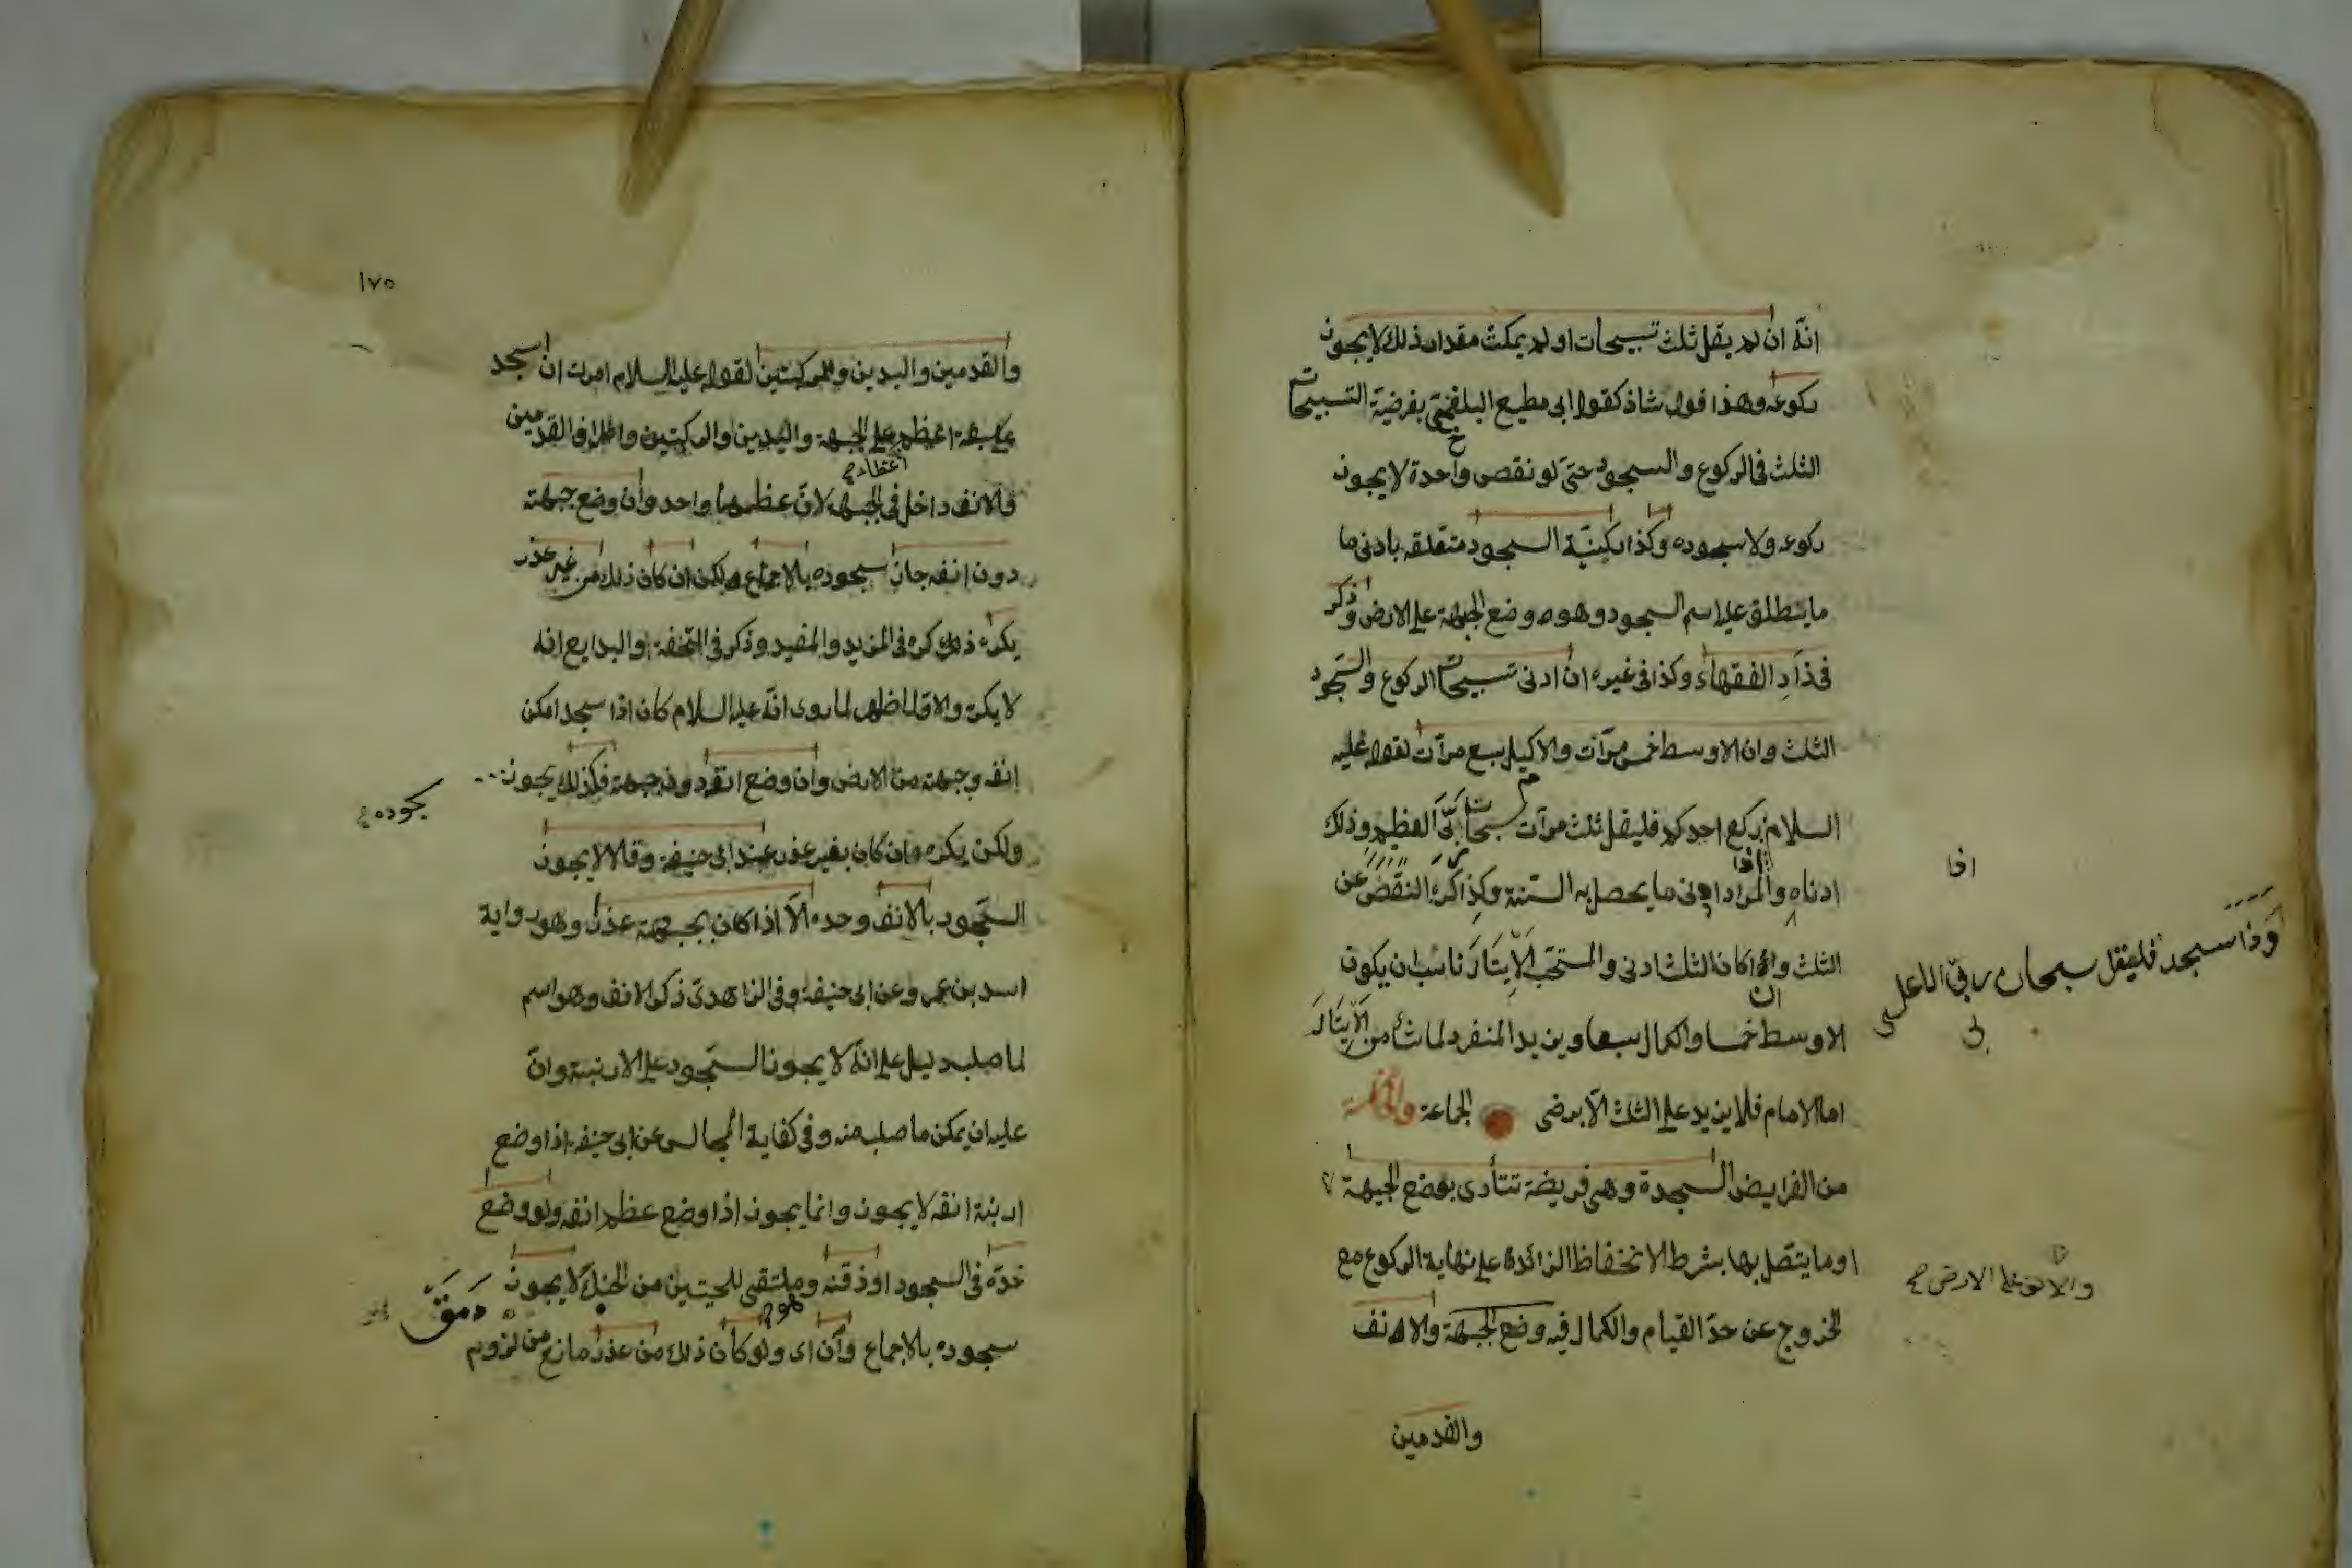 انه ان لم يقل ثلث تسبيحات او لم يمكث مقدار ذلك لا يجوز
ركوعه وهذا قول شاذ كقول ابى مطيع البلخى بفرضية التسبيحات
الثلث فى الركوع والسجود حتى لو نقص واحدة لا يجوز
ركوعه ولا سجوده وكذا ركنية السجود متعلقه بادنى ما
ما ينطلق عليه اسم السجود وهو وضع الجبهة على الارض وذكر
فى زاد الفقهاء وكذا فى غيره ان ادنى تسبيحات الركوع والسجود
الثلث وان الاوسط خمس مرات والاكمل سبع مرات لقوله عليه
السلام اذا ركع احدكم فليقل ثلث مرات سبحان ربى العظيم وذلك
ادناه والمراد ادنى ما يحصل به السنة وكذا كره النقص عن
الثلث واذا كان الثلث ادنى والمستحب الايتار ناسب ان يكون
الاوسط خمسا والكمال سبعا ويزيد المنفرد لما شاء من الايتار
اما الامام فلا يزيد على الثلث الا برضى الجماعة والخامسة
من الفرايض السجدة وهى فريضة تتأدى بوضع الجبهة
او ما يتصل بها بشرط الانخفاظ الزائدة على نهاية الركوع مع
الخروج عن حد القيام والكمال فيه وضع الجبهة والانف
والقدمين
اذا
واذا سجد فليقل سبحان ربى الاعلى
والانف على الارض صح
١٧٥
والقدمين واليدين والركبتين لقوله عليه السلام امرت ان اسجد
على سبعة اعظم على الجبهة واليدين والركبتين واطراف القدمين
فالانف داخل فى الجبهة لان عظمهما واحد وان وضع جبهته
دون انفه جاز سجوده بالاجماع ولكن ان كان ذلك من غير عذر
يكره ذلك كره فى المزيد والمفيد وذكر فى التحفة والبدايع انه
لا يكره والاول اظهر لما روى انه عليه السلام كان اذا سجد امكن
انفه وجبهته من الارض وان وضع انفه دون جبهته فكذلك يجوز
سجوده
ولكن يكره وان كان بغير عذر عند ابى حنيفة وقالا لا يجوز
السجود بالانف وحده الا اذا كان بجبهته عذر وهو رواية
اسد بن عمر وعن ابى حنيفة وفى الزاهدى ذكر الانف وهو اسم
لما صلب دليل على انه لا يجوز السجود على الارنبة وان
عليه ان يمكن ما صلب منه وفى كفاية المجالس عن ابى حنيفة اذا وضع
ارنبة انفه لا يجوز وانما يجوز اذا وضع عظم انفه ولو وضع
خده فى السجود او ذقنه وهو ملتقى اللحيتين من الحنك لا يجوز
سجوده بالاجماع وان اى ولو كان ذلك من عذر مانع من لزوم